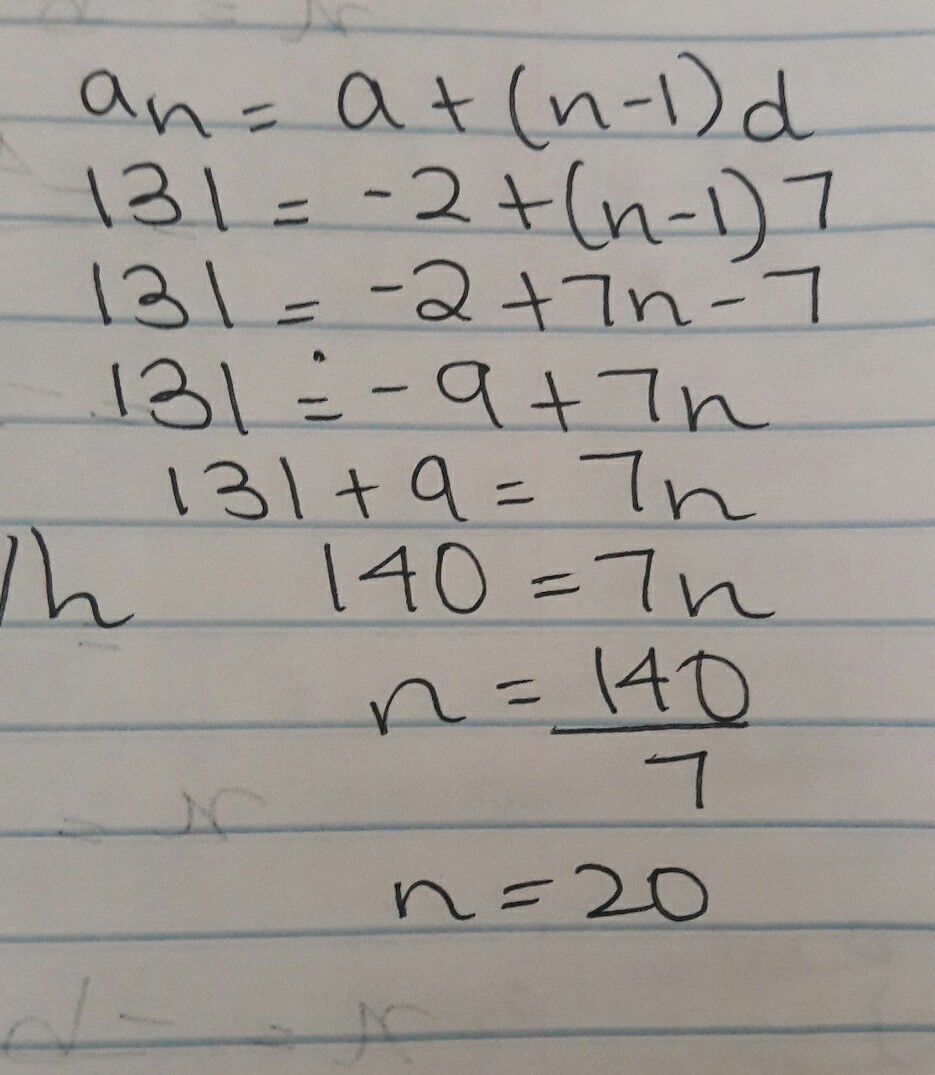 an = a + (n-1)d
131 = -2 + (n-1) 7
131 = -2 + 7n - 7
131 = -9 + 7n
131 + 9 = 7n
140 = 7n
n = 140
7
n = 20